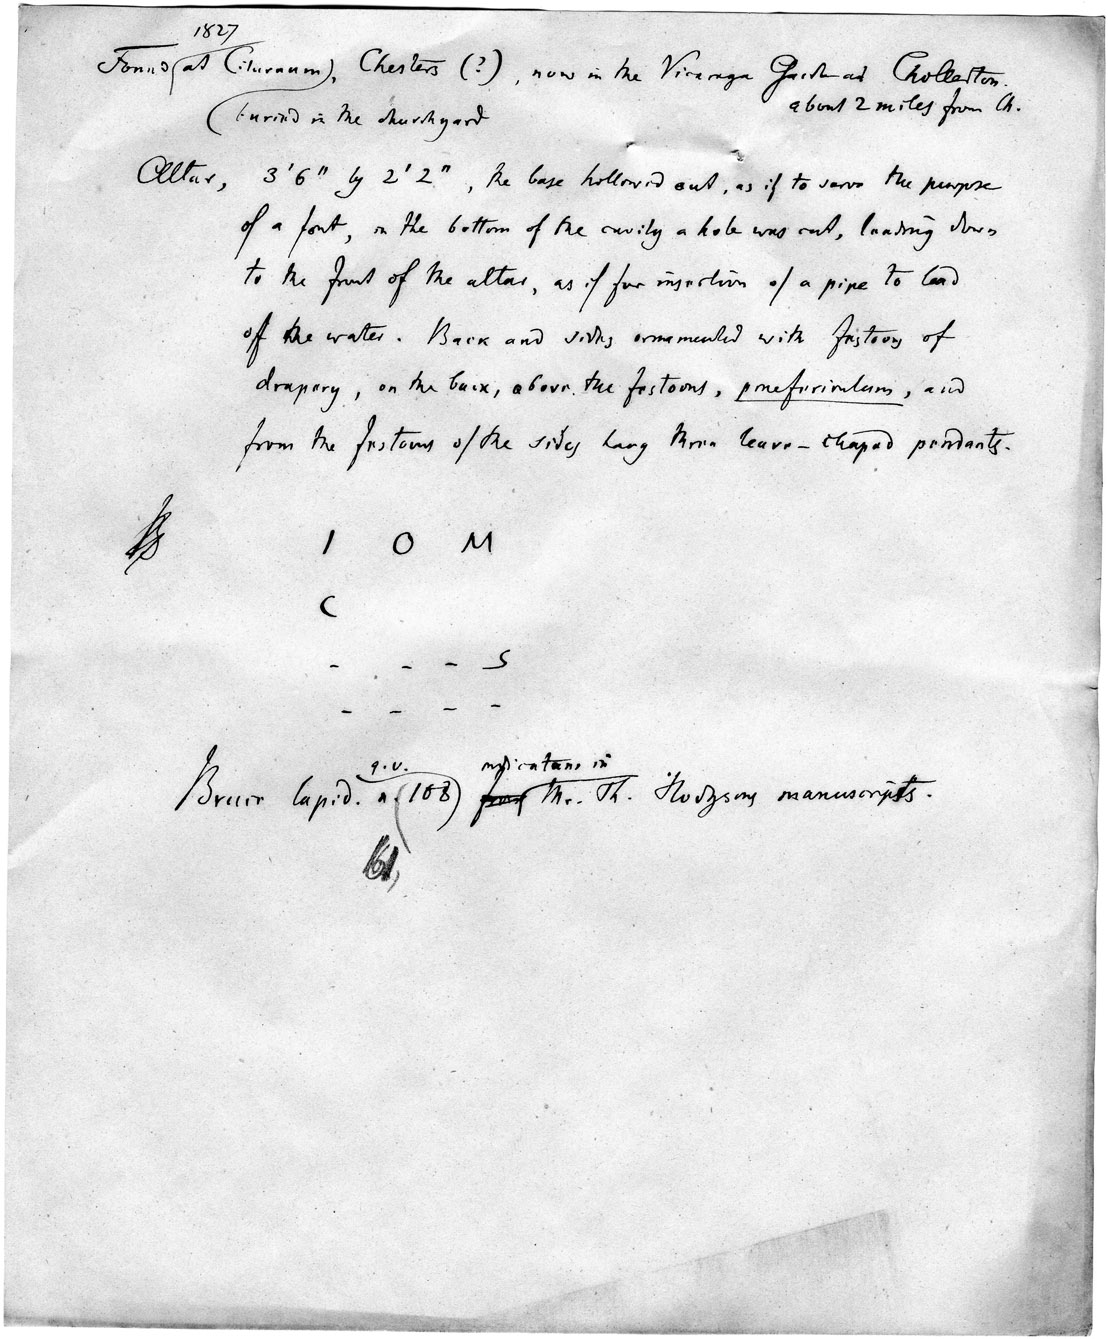 1827
Found at Cilurnum, Chesters (?), now in the Vicarage Garden at Chollerton.
about 2 miles from Ch.
buried in the churchyard
Altar, 3'6" by 2'2", the base hollowed out, as if to serve the purpose
of a font, in the bottom of the cavity a hole was cut, leading down
to the front of the altar, as if for insertion of a pipe to lead
off the water. Back and sides ornamented with festoons of
drapery, on the back, above the festoons, praefericulum, and
from the festoons of the sides hang three leave-shaped pendants.
I O M
C
- - - S
- - - -
q.v. in
Bruce lapid. n. (108) from Mr. Th. Hodgsons manuscripts.
161,